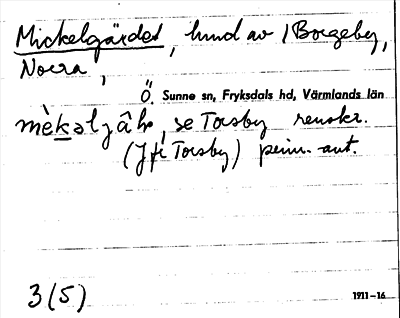 Mickelgärdet, hmd av 1 Borgeby,
Norra,
Ö. Sunne sn, Fryksdals hd, Värmlands län
mèkəljâḷə, se Torsby renskr.
(Jfr Torsby) perm.-ant.
3(5)
1911-16